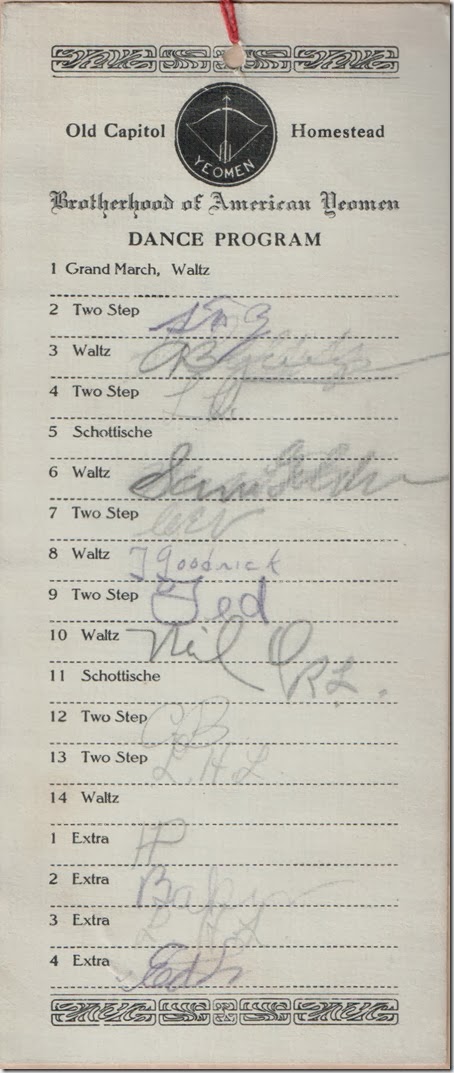 Old Capitol Homestead
YEOMEN
Brotherhood of American Yeomen
DANCE PROGRAM
1 Grand March, Waltz
2 Two Step
3 Waltz
4 Two Step
5 Schottische
6 Waltz Sam
7 Two Step
8 Waltz J Goodrick
9 Two Step Ted
10 Waltz Neil O
11 Schottische R.L.
12 Two Step CB
13 Two Step L.H.L.
14 Waltz
1 Extra HP
2 Extra
3 Extra
4 Extra